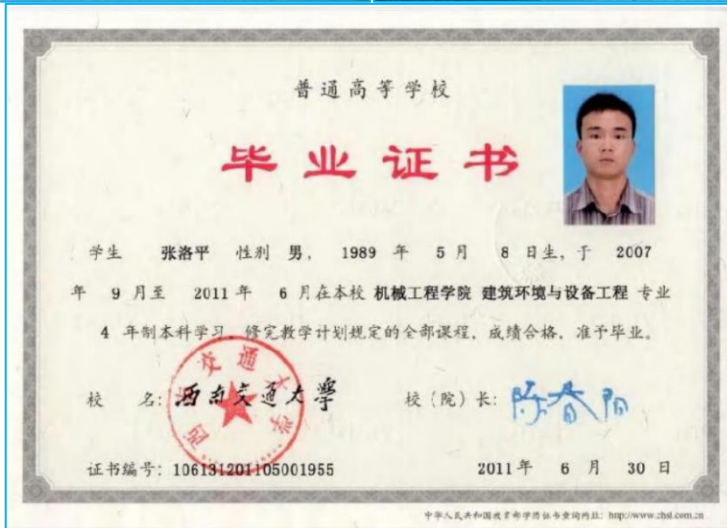 普通高等学校
毕业证书
学生 张洛平 性别 男， 1989 年 5 月 8 日生，于 2007
年 9 月至 2011 年 6 月在本校 机械工程学院 建筑环境与设备工程 专业
4 年制本科学习，修完教学计划规定的全部课程，成绩合格，准予毕业。
校 名：西南交通大学 校（院）长：陈春阳
西南交通大学
证书编号：106131201105001955 2011年 6 月 30 日
中华人民共和国教育部学历证书查询网址：http://www.chsi.com.cn